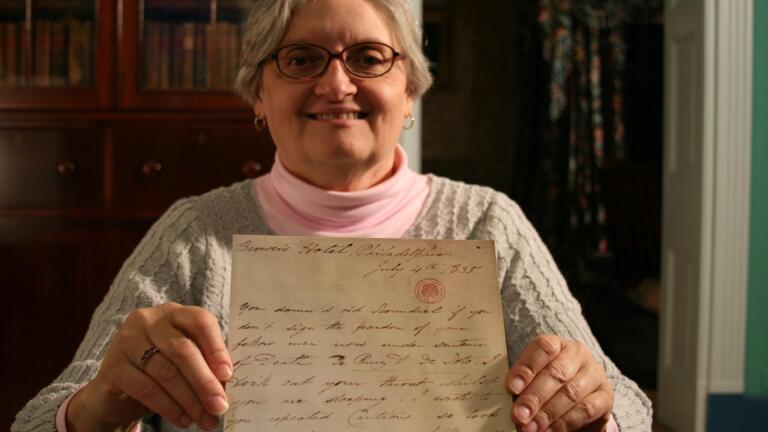 Brower's Hotel, Philadelphia
July 4th 1835
You damn'd old Scoundrel if you
don't sign the pardon of your
fellow men now under sentence
of Death De Ruiz & De Soto, I
will cut your throat whilst
you are sleeping. I wrote to
you repeated Cautions so look